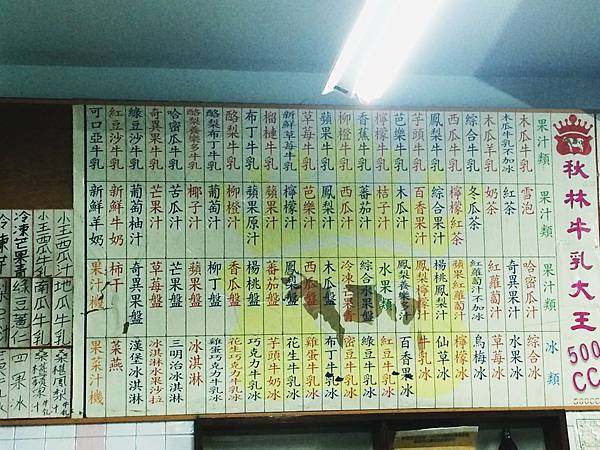 秋林牛乳大王
500
CC
500CC
果汁類
木瓜牛乳
木瓜牛乳不加冰
木瓜羊乳
綜合牛乳
西瓜牛乳
鳳梨牛乳
芋頭牛乳
芭樂牛乳
檸檬牛乳
香蕉牛乳
柳橙牛乳
蘋果牛乳
草莓牛乳
新鮮草莓牛乳
榴槤牛乳
布丁牛乳
酪梨牛乳
酪梨布丁牛乳
酪梨養樂多牛乳
哈密瓜牛乳
奇異果牛乳
綠豆沙牛乳
紅豆沙牛乳
可口亞牛乳
果汁類
雪泡
紅茶
奶茶
冬瓜茶
檸檬紅茶
綜合果汁
百香果汁
木瓜汁
桔子汁
蕃茄汁
西瓜汁
鳳梨汁
芭樂汁
檸檬汁
蘋果汁
蘋果原汁
柳橙汁
葡萄汁
椰子汁
苦瓜汁
芒果汁
葡萄柚汁
新鮮牛奶
新鮮羊奶
果汁類
哈密瓜汁
奇異果汁
紅蘿蔔汁
紅蘿蔔汁不加冰
蘋果紅蘿蔔汁
楊桃鳳梨汁
鳳梨檸檬汁
鳳梨養樂
水果類
綜合果盤
冷凍芒果青
木瓜盤
西瓜盤
鳳梨盤
蕃茄盤
楊桃盤
香瓜盤
柳丁盤
蘋果盤
芒果盤
草莓盤
奇異果盤
柿干
果汁機
冰類
綜合冰
水果冰
草莓冰
烏梅冰
檸檬冰
仙草冰
牛乳冰
百香果冰
紅豆牛乳冰
綠豆牛乳冰
密豆牛乳冰
布丁牛乳冰
雞蛋牛乳冰
花生牛乳冰
芋頭牛奶冰
巧克力牛乳冰
花生巧克力牛乳冰
雞蛋巧克力牛乳冰
冰淇淋
三明治冰淇淋
冰淇淋水果沙拉
漢堡冰淇淋
菜燕
果菜汁機
小玉西瓜汁
小玉西瓜牛乳
冷凍芒果青
地瓜牛乳
南瓜牛乳
綠豆薏仁
桑椹鳳梨汁
桑椹蘋果汁
四果冰